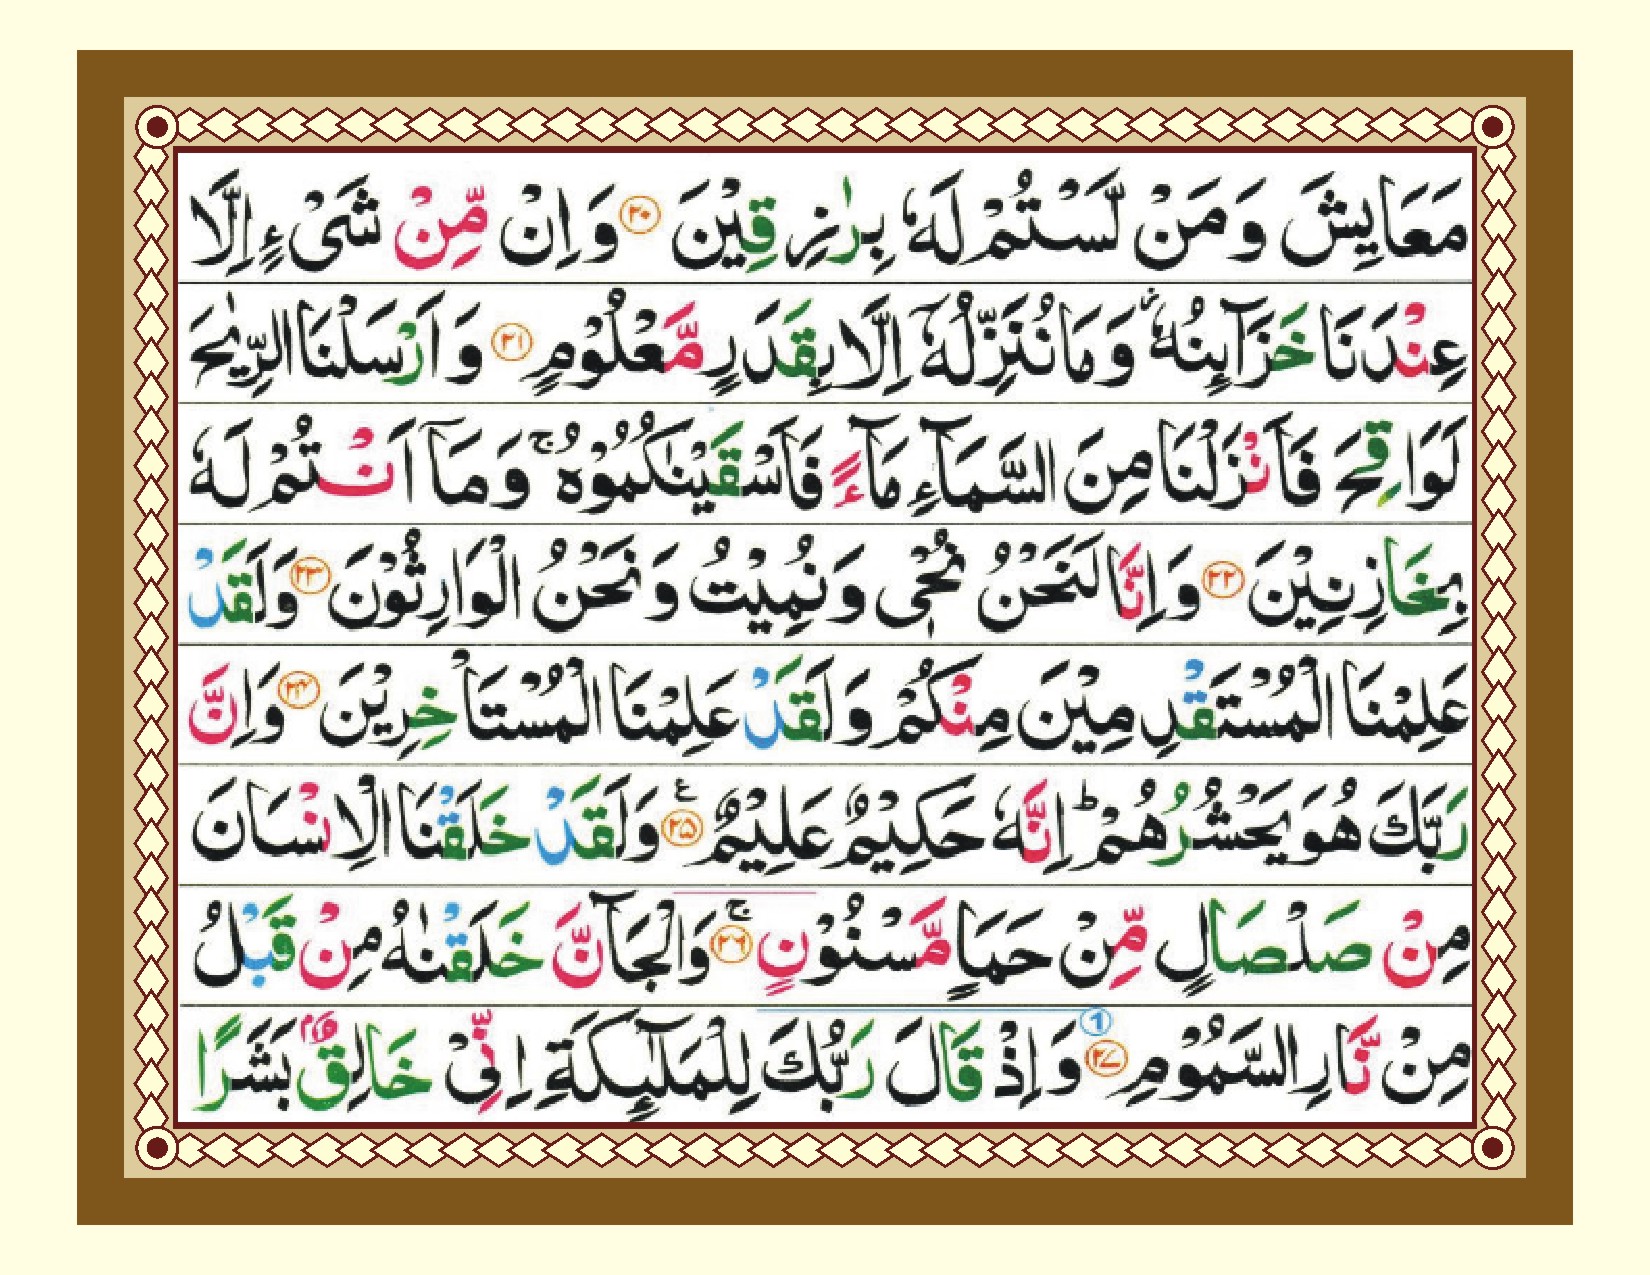 مَعَايِشَ وَمَنْ لَّسْتُمْ لَهٗ بِرٰزِقِيْنَ ﴿۲۰﴾ وَاِنْ مِّنْ شَىْءٍ اِلَّا
عِنْدَنَا خَزَآىِٕنُهٗ ؗ وَمَا نُنَزِّلُهٗۤ اِلَّا بِقَدَرٍ مَّعْلُوْمٍ ﴿۲۱﴾ وَاَرْسَلْنَا الرِّيٰحَ
لَوَاقِحَ فَاَنْزَلْنَا مِنَ السَّمَآءِ مَآءً فَاَسْقَيْنٰكُمُوْهُ ۚ وَمَاۤ اَنْتُمْ لَهٗ
بِخٰازِنِيْنَ ﴿۲۲﴾ وَاِنَّا لَنَحْنُ نُحْىٖ وَنُمِيْتُ وَنَحْنُ الْوَارِثُوْنَ ﴿۲۳﴾ وَلَقَدْ
عَلِمْنَا الْمُسْتَقْدِمِيْنَ مِنْكُمْ وَلَقَدْ عَلِمْنَا الْمُسْتَاْخِرِيْنَ ﴿۲۴﴾ وَاِنَّ
رَبَّكَ هُوَ يَحْشُرُهُمْ ؕ اِنَّهٗ حَكِيْمٌ عَلِيْمٌ ﴿۲۵﴾ ع وَلَقَدْ خَلَقْنَا الْاِنْسَانَ
مِنْ صَلْصَالٍ مِّنْ حَمَاٍ مَّسْنُوْنٍ ﴿۲۶﴾ ۚ وَالْجَآنَّ خَلَقْنٰهُ مِنْ قَبْلُ
مِنْ نَّارِ السَّمُوْمِ ﴿۲۷﴾ 1 وَاِذْ قَالَ رَبُّكَ لِلْمَلٰٓىِٕكَةِ اِنِّىْ خَالِقٌۢ بَشَرًا